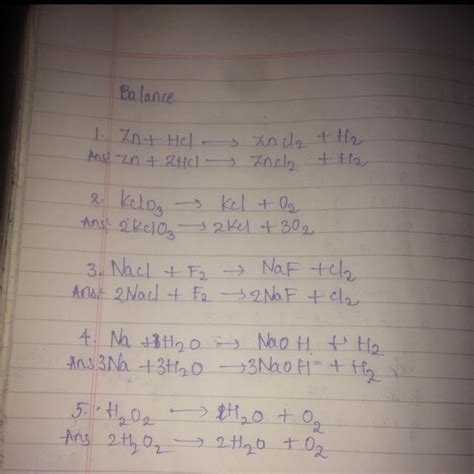 Balance
1. Zn + HCl → ZnCl2 + H2
Ans: Zn + 2HCl → ZnCl2 + H2
2. KClO3 → KCl + O2
Ans: 2KClO3 → 2KCl + 3O2
3. NaCl + F2 → NaF + Cl2
Ans: 2NaCl + F2 → 2NaF + Cl2
4. Na + H2O → NaOH + H2
Ans 3Na + 3H2O → 3NaOH + H2
5. H2O2 → H2O + O2
Ans 2H2O2 → 2H2O + O2